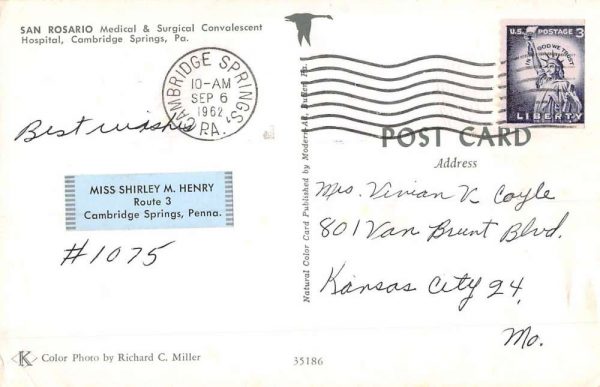 SAN ROSARIO Medical & Surgical Convalescent
Hospital, Cambridge Springs, Pa.
CAMBRIDGE SPRINGS,
10-AM
SEP 6
1962
PA.
U.S. POSTAGE 3¢
IN GOD WE TRUST
LIBERTY
Best wishes
MISS SHIRLEY M. HENRY
Route 3
Cambridge Springs, Penna.
#1075
Natural Color Card Published by Modern-Ad, Butler, Pa.
POST CARD
Address
Mrs. Vivian V. Coyle
801 Van Brunt Blvd.
Kansas City 24,
Mo.
K Color Photo by Richard C. Miller
35186